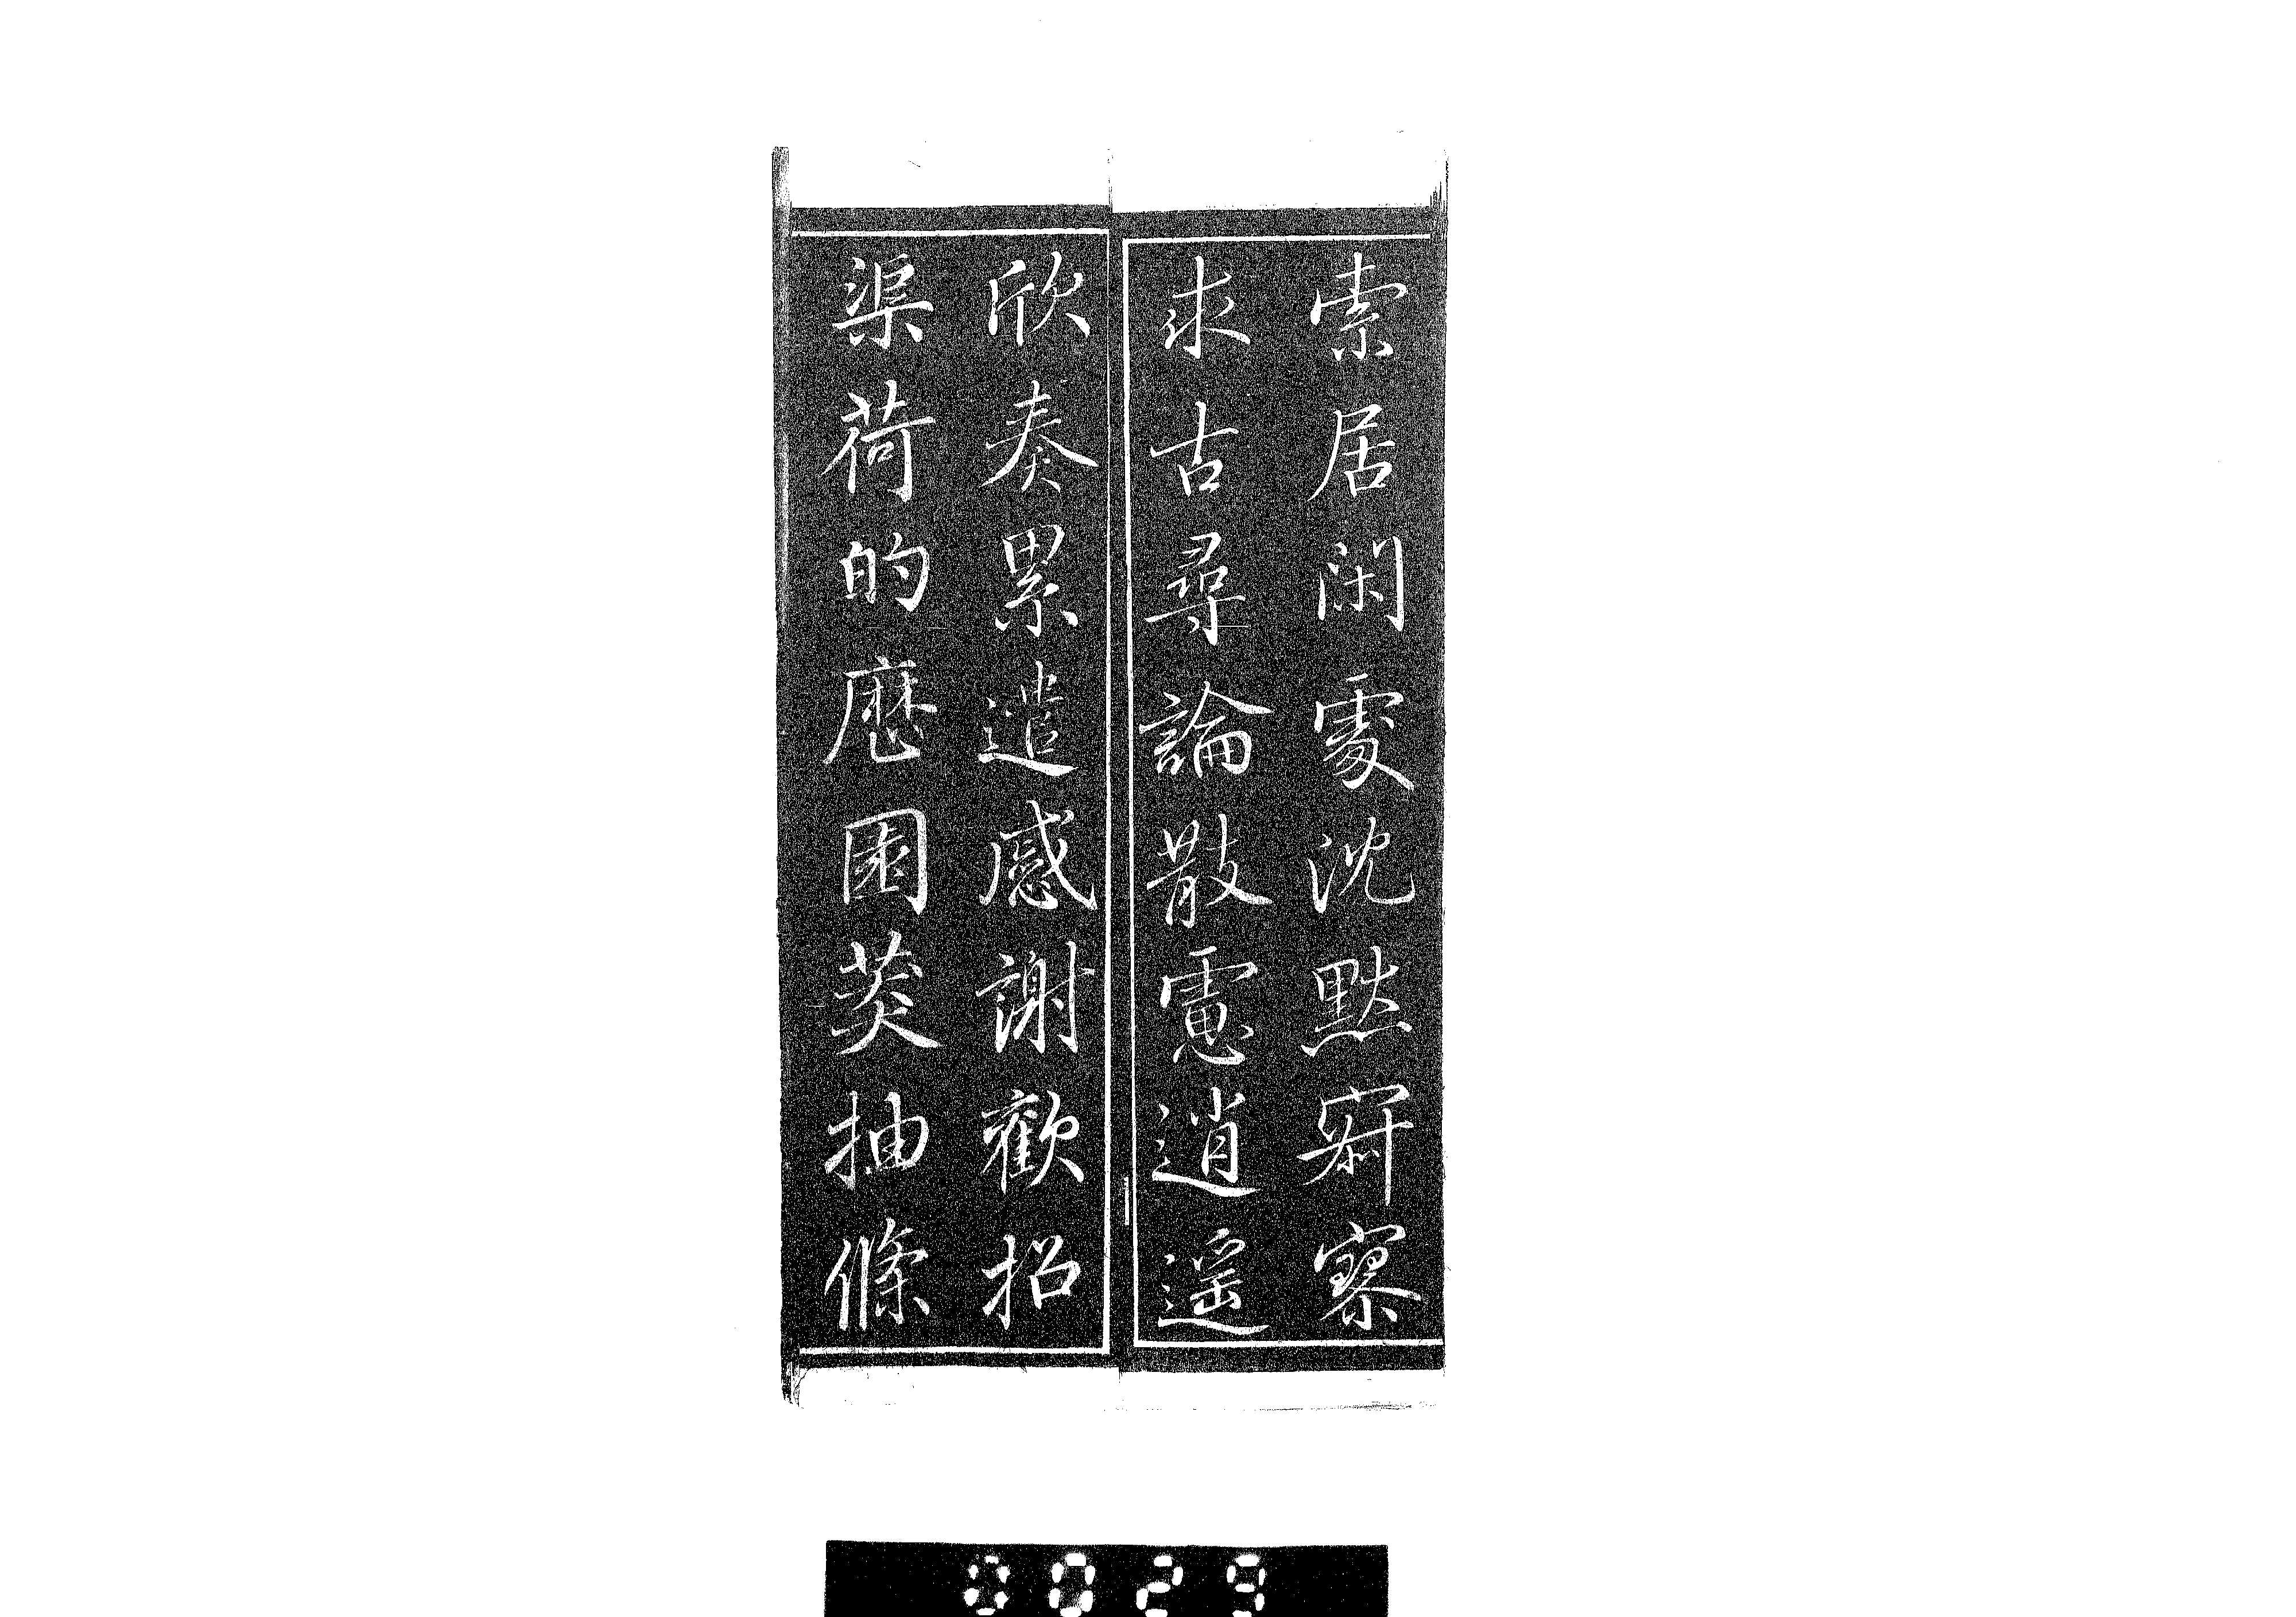 索居閑處沈默寂寥
求古尋論散慮逍遥
欣奏累遣慼謝歡招
渠荷的歴園莽抽條
0029